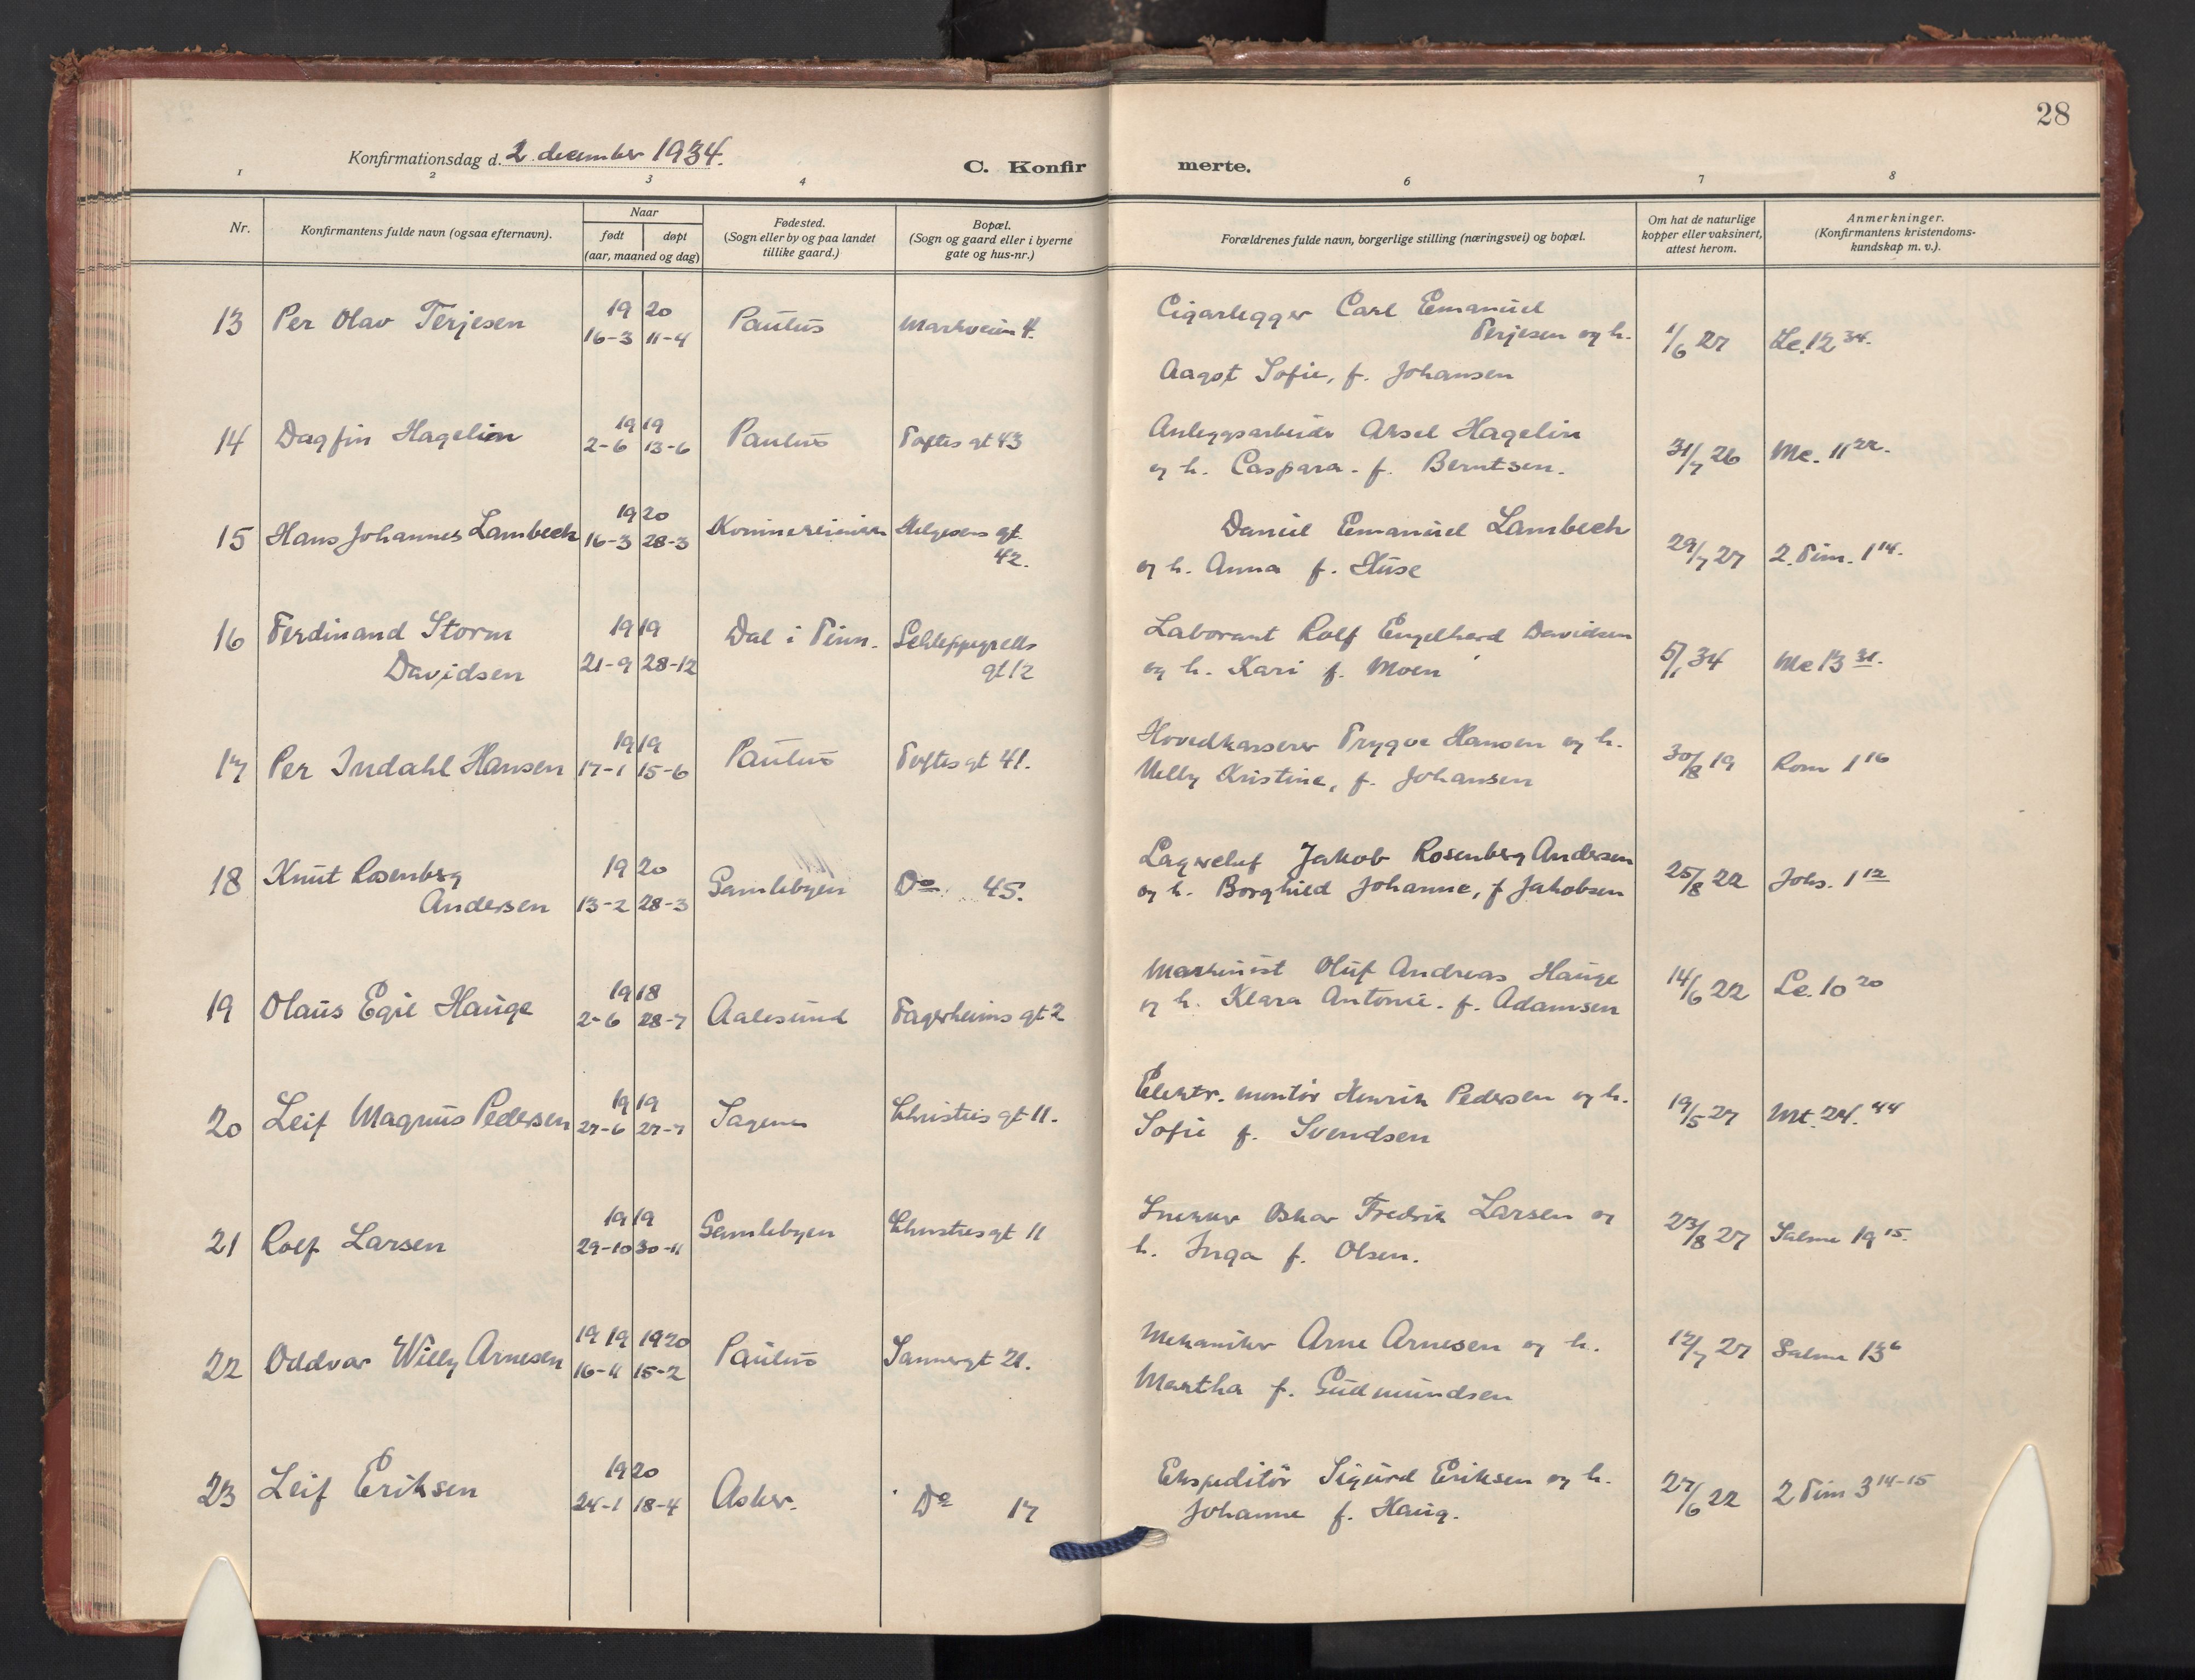 28
Konfirmationsdag d. 2. december 1934.
C. Konfir merte.
1 2 3 4 6 7 8
Nr.
Konfirmantens fulde navn (ogsaa efternavn).
Naar
født døpt
(aar, maaned og dag)
Fødested.
(Sogn eller by og paa landet
tillike gaard.)
Bopæl.
(Sogn og gaard eller i byerne
gate og hus-nr.)
Forældrenes fulde navn, borgerlige stilling (næringsvei) og bopæl.
Om hat de naturlige
kopper eller vaksinert,
attest herom.
Anmerkninger.
(Konfirmantens kristendoms-
kundskap m. v.).
13 Per Olav Terjesen 19 20 16-3 11-4 Paulus Markveien 4.
Cigarlegger Carl Emanuel
Terjesen og h.
Aagot Sofie, f. Johansen
1/6 27 Lc. 12 34.
14 Dagfin Hagelin 19 19 2-6 13-6 Paulus Toftes gt 43
Anleggsarbeider Aksel Hagelin
og h. Caspara. f. Berntsen.
31/7 26 Mc. 11 22.
15 Hans Johannes Lambech 19 20 16-3 28-3 Helgesens gt
42.
Daniel Emanuel Lambech
og h. Anna f. Huse
29/7 27 2. Tim. 1 14.
16 Ferdinand Storm
Davidsen
19 19 21-9 28-12 Dal i Tinn. Schleppegrells
gt 12
Laborant Rolf Engelhard Davidsen
og h. Kari f. Moen
5/1 34 Mc 13 31.
17 Per Indahl Hansen 19 19 17-1 15-6 Paulus Toftes gt 41.
Hovedkasserer Trygve Hansen og h.
Nelly Kristine, f. Johansen
30/8 19 Rom 1 16
18 Knut Rosenberg
Andersen
19 20 13-2 28-3 Gamlebyen Do. 45.
Lagerchef Jakob Rosenberg Andersen
og h. Borghild Johanne, f Jakobsen
25/8 22 Johs. 1 12
19 Olaus Egil Hauge 19 18 2-6 28-7 Aalesund Fagerheims gt 2
Maskinist Oluf Andreas Hauge
og h. Klara Antonie. f. Adamsen
14/6 22 Lc. 10 20
20 Leif Magnus Pedersen 19 19 27-6 27-7 Sagene Christies gt 11.
Elektr. montør Henrik Pedersen og h.
Sofie f. Svendsen
19/5 27 Mt. 24. 44
21 Rolf Larsen 19 19 29-10 30-11 Gamlebyen Christies gt 11
Snekker Oskar Fredrik Larsen og
h. Inga f. Olsen.
23/8 27 Salme 19 15.
22 Oddvar Willy Arnesen 19 19 1920 16-11 15-2 Paulus Sannergt 21.
Mekaniker Arne Arnesen og h.
Martha f. Gudmundsen
12/7 27 Salme 13 6
23 Leif Eriksen 19 20 24-1 18-4 Asker. Do 17
Ekspeditør Sigurd Eriksen og h.
Johanne f. Haug.
27/6 22 2 Tim 3 14-15